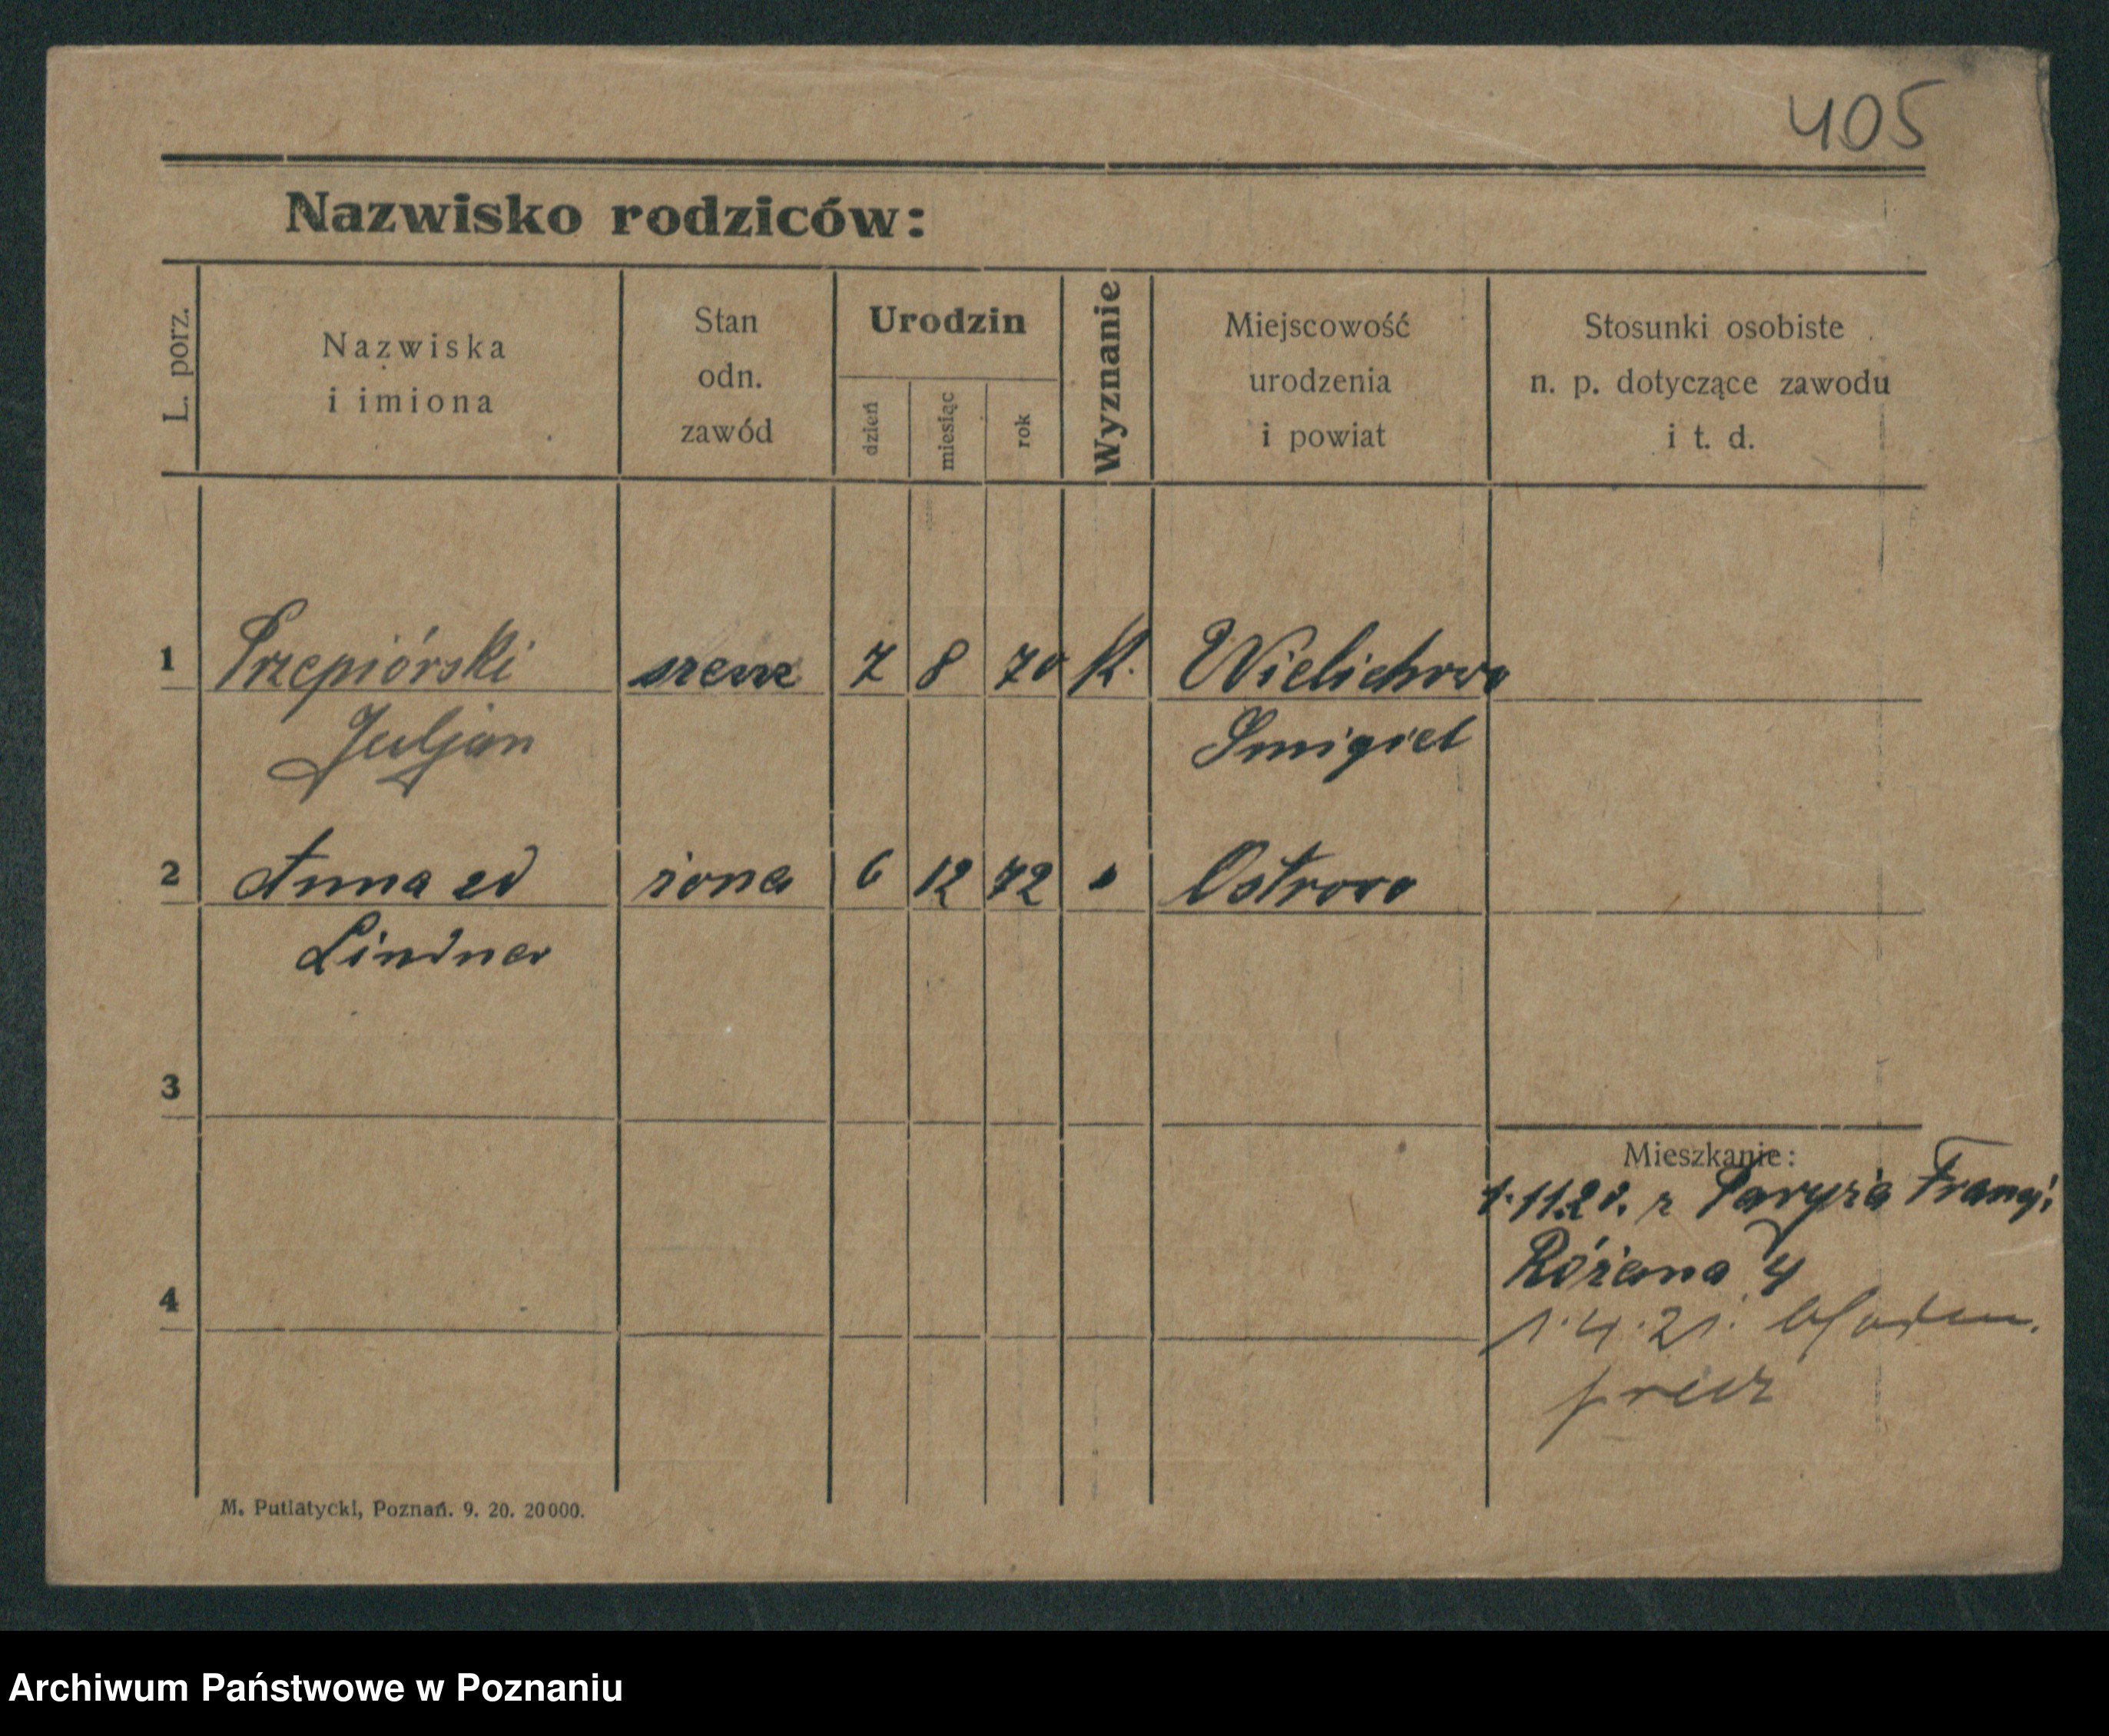 405
Nazwisko rodziców:
L. porz.
Nazwiska
i imiona
Stan
odn.
zawód
Urodzin
dzień
miesiąc
rok
Wyznanie
Miejscowość
urodzenia
i powiat
Stosunki osobiste
n. p. dotyczące zawodu
i t. d.
1 Przepiórski szewc 7 8 70 K. Wielichowo
Juljan Smigiel
2 Anna zd żona 6 12 72 Ostrowo
Lindner
3
Mieszkanie:
1.11.20. z Paryża Francji
Różana 4
4
1.4.21.
precz
M. Putiatycki, Poznań. 9. 20. 20000.
Archiwum Państwowe w Poznaniu